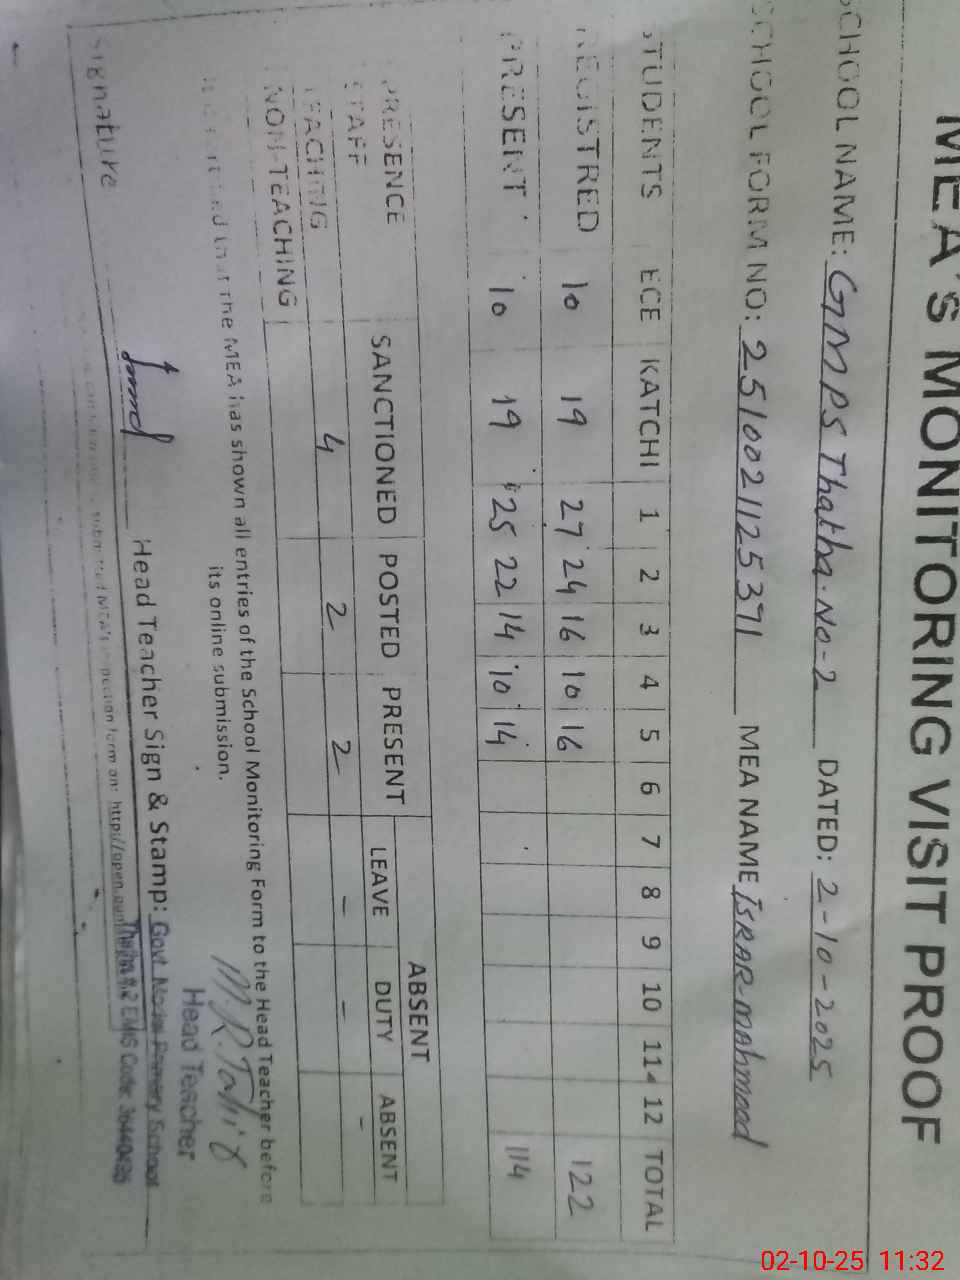 MEA'S MONITORING VISIT PROOF
SCHOOL NAME: GMPS Thatha. No-2 DATED: 2-10-2025
SCHOOL FORM NO: 2510021125371 MEA NAME ISRAR mahmood
STUDENTS ECE KATCHI 1 2 3 4 5 6 7 8 9 10 11 12 TOTAL
REGISTRED 10 19 27 24 16 10 16 122
PRESENT 10 19 25 22 14 10 14 114
ABSENT
PRESENCE SANCTIONED POSTED PRESENT LEAVE DUTY ABSENT
STAFF
TEACHING 4 2 2 - - -
NON-TEACHING
that the MEA has shown all entries of the School Monitoring Form to the Head Teacher before
its online submission.
M.R.Tahir
Head Teacher
Head Teacher Sign & Stamp: Govt. Model Primary School
No.2 EMIS Code:
Signature
submitted MEA's inspection form on: http://open.
02-10-25 11:32